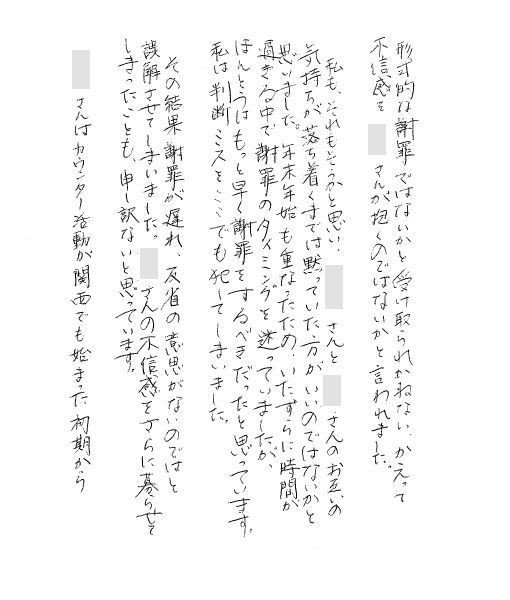 形式的な謝罪ではないかと受け取られかねない、かえって
不信感を さんが抱くのではないかと言われました。
私も、それもそうかと思い、 さんと さんのお互いの
気持ちが落ち着くまでは黙っていた方がいいのではないかと
思いました。年末年始も重なったため、いたずらに時間が
過ぎる中で謝罪のタイミングを迷っていましたが、
ほんとうはもっと早く謝罪をするべきだったと思っています。
私は判断ミスをここでも犯してしまいました。
その結果謝罪が遅れ、反省の意思がないのではと
誤解させてしまいました。 さんの不信感をさらに募らせて
しまったことも、申し訳ないと思っています。
さんはカウンター活動が関西でも始まった初期から